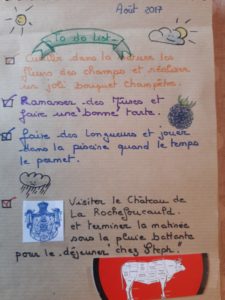 Août 2017
To do list
Cueillir dans la nature les
fleurs des champs et réaliser
un joli bouquet champêtre.
Ramasser des Mures et
faire une bonne tarte.
Faire des longueurs et jouer
dans la piscine quand le temps
le permet.
Visiter le Château de
La Rochefoucauld.
et terminer la matinée
sous la pluie battante
pour le déjeuner "chez Steph".